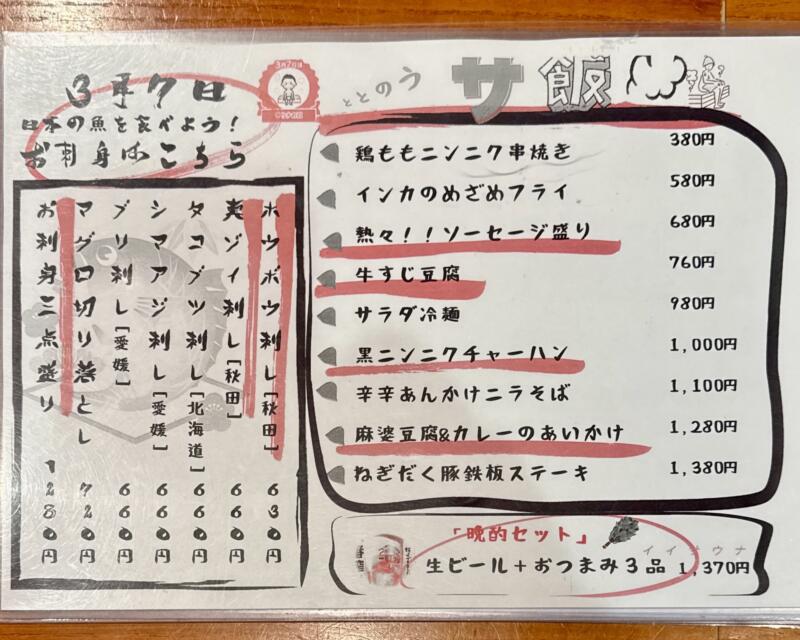 3月7日
日本の魚を食べよう！
お刺身はこちら
ホウボウ刺し［秋田］ 630円
夷ゾイ刺し［秋田］ 660円
タコブツ刺し［北海道］ 660円
シマアジ刺し［愛媛］ 660円
ブリ刺し［愛媛］ 660円
マグロ切り落とし 720円
お刺身三点盛り 1280円
3月7日は
ととのう サ飯
鶏ももニンニク串焼き 380円
インカのめざめフライ 580円
熱々！！ソーセージ盛り 680円
牛すじ豆腐 760円
サラダ冷麺 980円
黒ニンニクチャーハン 1,000円
辛辛あんかけニラそば 1,100円
麻婆豆腐&カレーのあいかけ 1,280円
ねぎだく豚鉄板ステーキ 1,380円
「晩的セット」
イイサウナ
生ビール＋おつまみ3品 1,370円